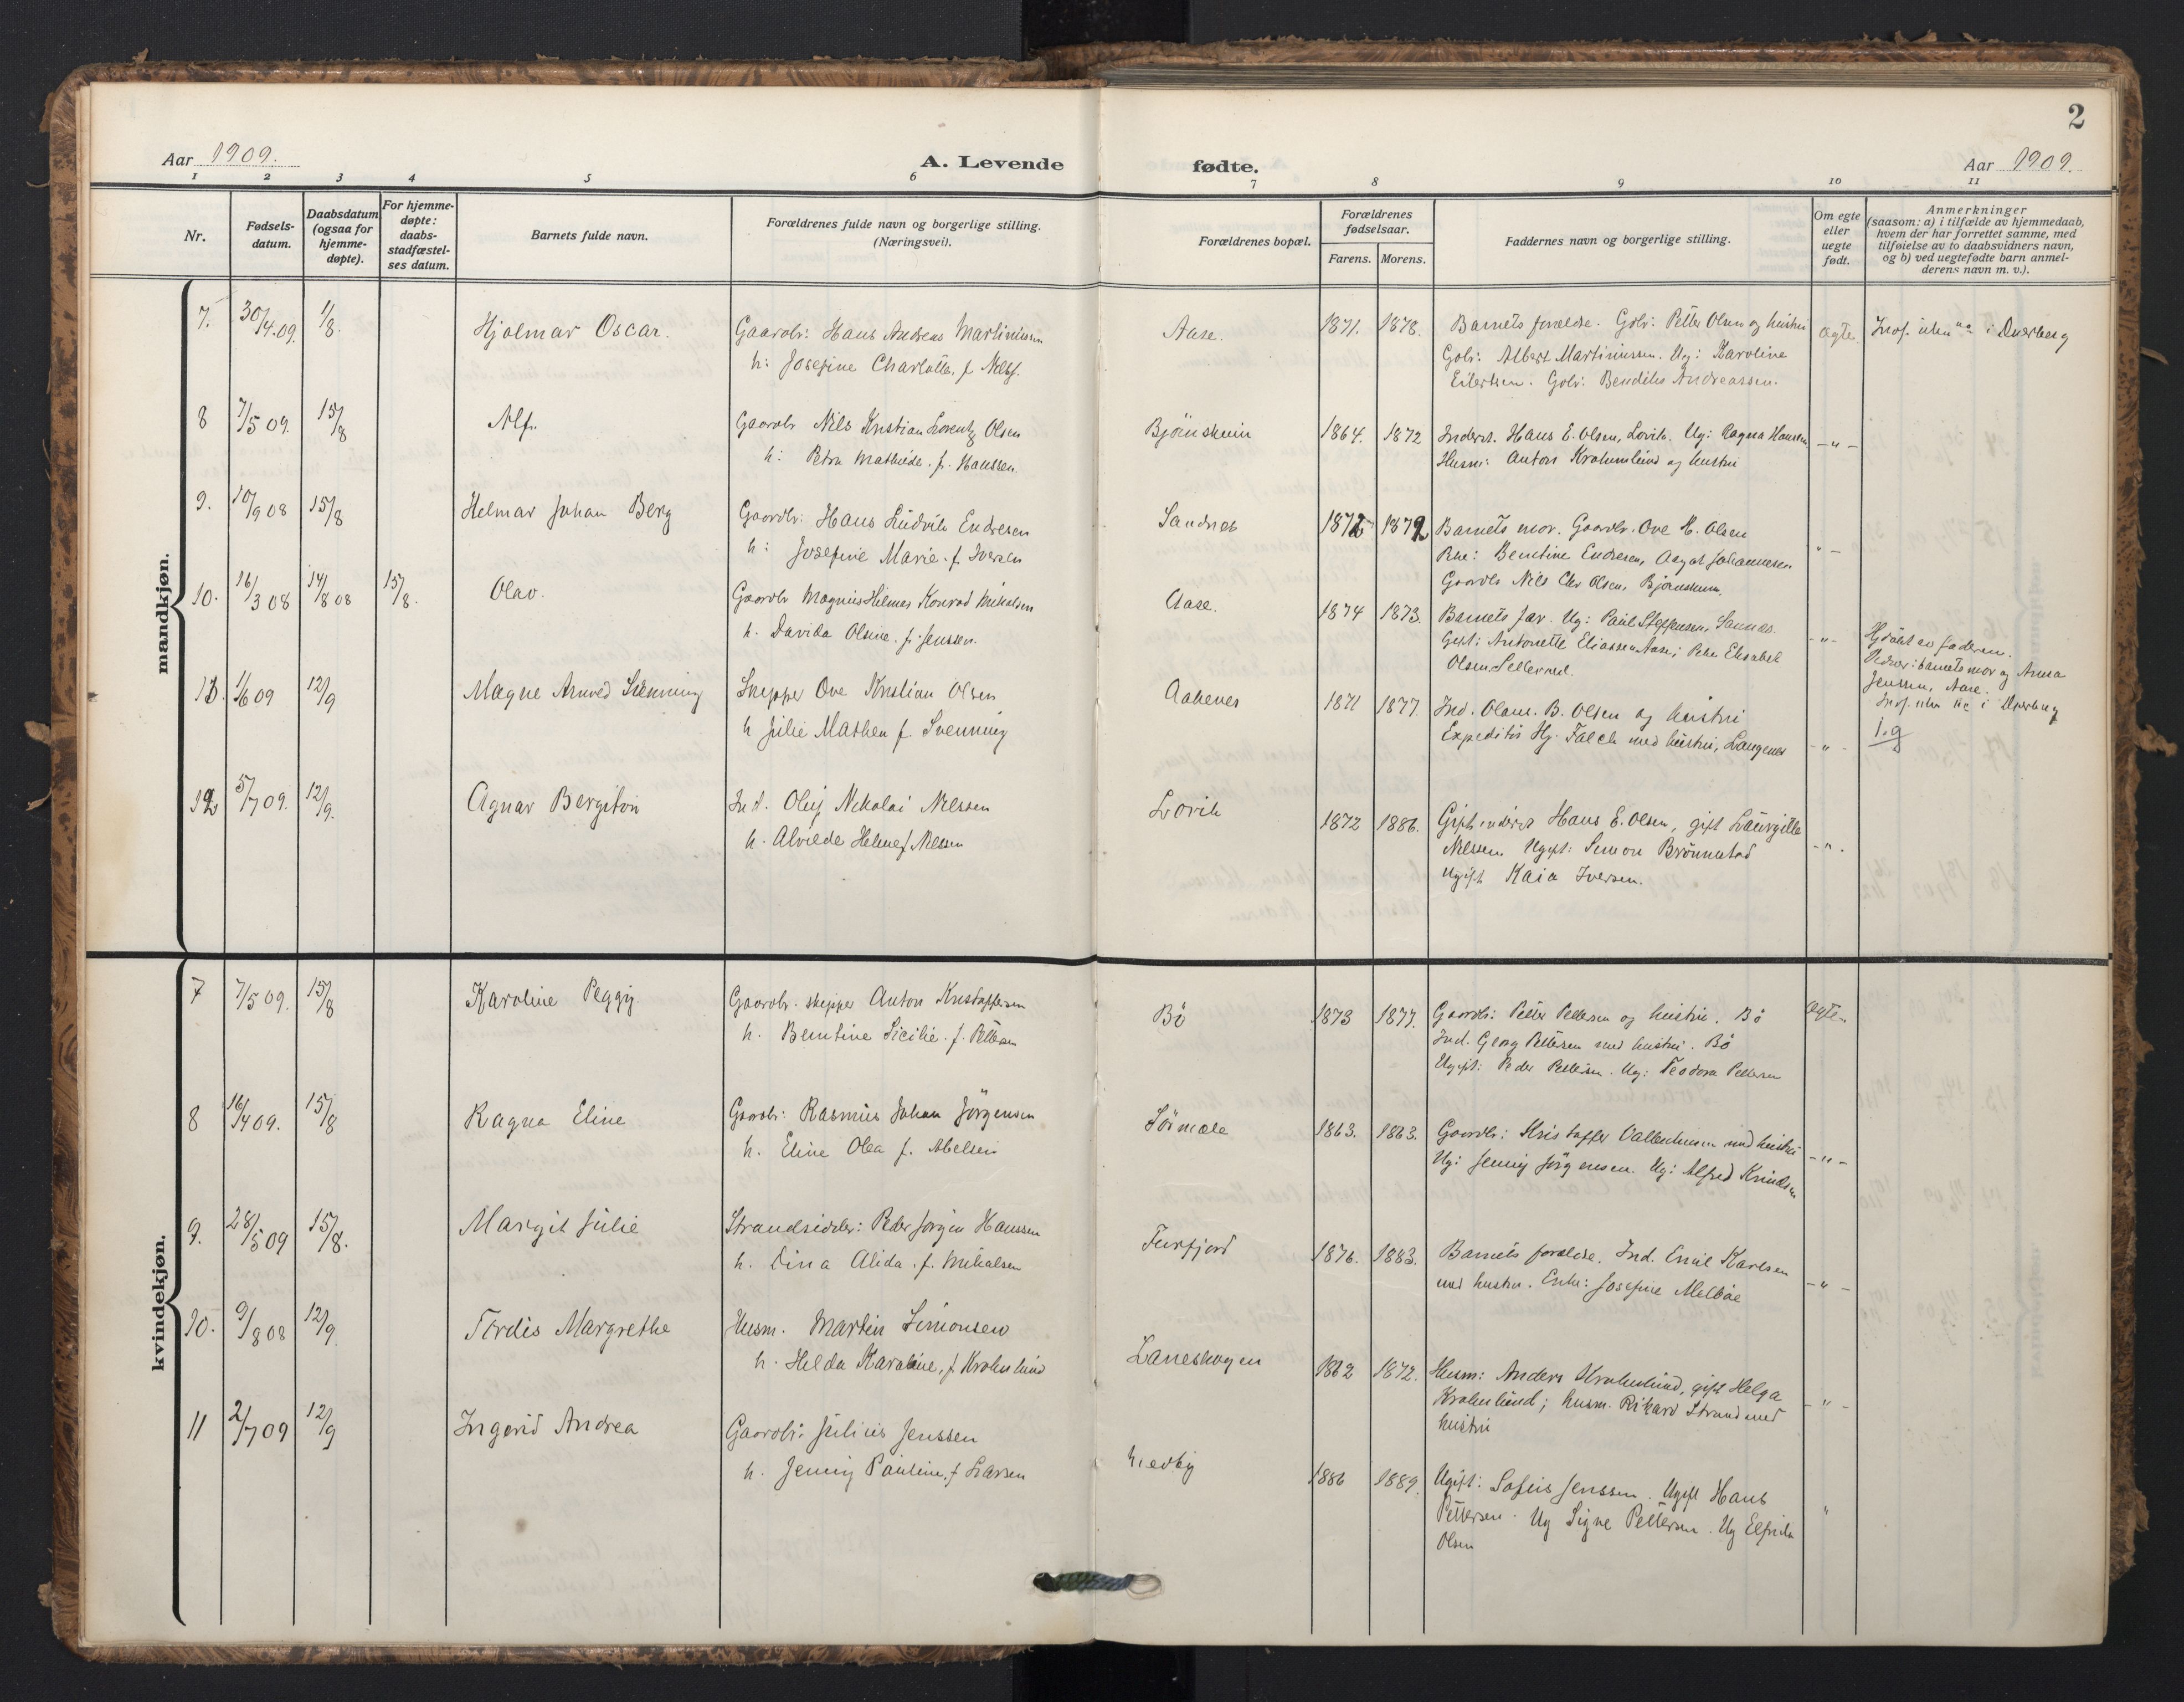 2
Aar 1909.
A. Levende
fødte.
Aar 1909.
1 2 3 4 5 6 7 8 9 10 11
Nr.
Fødsels-
datum.
Daabsdatum
(ogsaa for
hjemme-
døpte).
For hjemme-
døpte:
daabs-
stadfæstel-
ses datum.
Barnets fulde navn.
Forældrenes fulde navn og borgerlige stilling.
(Næringsvei).
Forældrenes bopæl.
Forældrenes
fødselsaar.
Farens. Morens.
Faddernes navn og borgerlige stilling.
Om egte
eller
uegte
født.
Anmerkninger
(saasom: a) i tilfælde av hjemmedaab,
hvem der har forrettet samme, med
tilføielse av to daabsvidners navn,
og b) ved uegtefødte barn anmel-
derens navn m. v.).
mandkjøn.
7. 30/4.09. 1/8. Hjalmar Oscar. Gaardbr: Hans Andreas Martinussen Aase. 1871. 1878. Barnets forældre. Gdbr: Petter Olsen og hustru Ægte
h: Josefine Charlotte, f. Gdbr: Albert Martinussen. Ug: Karoline
Eilertsen. Gdbr: Andreassen.
i Dverberg
8 7/5 09. 15/8 Alf. Gaardbr Nils Kristian Lorentz Olsen 1864. 1872 Hans E. Olsen, Lovik. Ug: Ragna Hansen -"-
h: Petra Mathilde. f. Hanssen. Husm: Anton og hustru
9. 10/9 08 15/8 Helmar Johan Berg Gaardbr: Hans Ludvik Endresen Sandnes 1872 1879 Barnets mor. Gaardbr. Ove H. Olsen
h: Josefine Marie. f. Iversen Pike: Bentine Endresen, Johannesen "-
Gaardbr Nils Chr Olsen, Bjørnskinn.
10. 16/3 08 14/8 08 15/8. Olav. Gaardbr Magnus Hilmar Konrad Mikalsen Aase. 1874 1873. Barnets far. Ug: Paul Steffensen, Sannes.
h. Davida Olsine. f. Jenssen. Gift: Antonette Eliassen Aase; Pike Elisabet -"-
Olsen
Hjdøbt av faderen.
Vidner: barnets mor og Anna
Jenssen, Aase.
i Dverberg
11. 1/6 09 12/9 Magne Arnved Svenning Skipper Ove Kristian Olsen Aakenes 1871 1877. Ind. Olaus. B. Olsen og hustru
h Julie Mathea f. Svenning Expeditør Hj. Falch med hustru, Langenes -"-
12 5/7 09. 12/9. Agnar Bergiton Ind. Oluf Nikolai Nilssen Lovik 1872 1886. Gift Hans E. Olsen, gift
h. Alvilde Helene f. Nilssen Nilssen Ugift: Simon -"-
Ugift Kaia Iversen.
kvindekjøn.
7 7/5 09. 15/8 Karoline Peggy Gaardbr. skipper Anton Kristoffersen Bö 1873 1877. Gaardbr: Petter Pettersen og hustru. Bö Ægte
h. Bentine Sicilie. f. Pettersen Ind. Georg Pettersen med hustru. Bö
Ugift: Peder Pettersen. Ug: Teodora Pettersen
8 16/4 09. 15/8 Ragna Eline Gaardbr: Rasmus Johan Jørgensen 1863. 1863. Gaardbr: Kristoffer med hustru -"-
h. Eline Olea f. Abelsen Ug: Jenny Jørgensen. Ug: Alfred Knudsen
9. 28/5 09 15/8. Margit Julie Strandsidder: Peder Jørgen Hanssen 1876. 1883. Barnets forældre. Ind. Emil Karlsen
h. Dina Alida. f. Mikalsen med hustru. Enke: Josefine Melbøe -"-
10. 9/8 08 12/9. Tordis Margrethe Husm. Martin Simonsen Laneskogen 1862 1872. Husm: Anders gift Helga
h. Helda Karoline, f. husm. Rikard Strand med -"-
hustru
11 2/7 09 12/9 Ingerid Andrea Gaardbr: Julius Jenssen 1886 1889. Ugift: Sofus Jenssen. Ugift Hans
h. Jenny Pauline, f Larsen Pettersen. Ug Signe Pettersen. Ug Elfrida "
Olsen